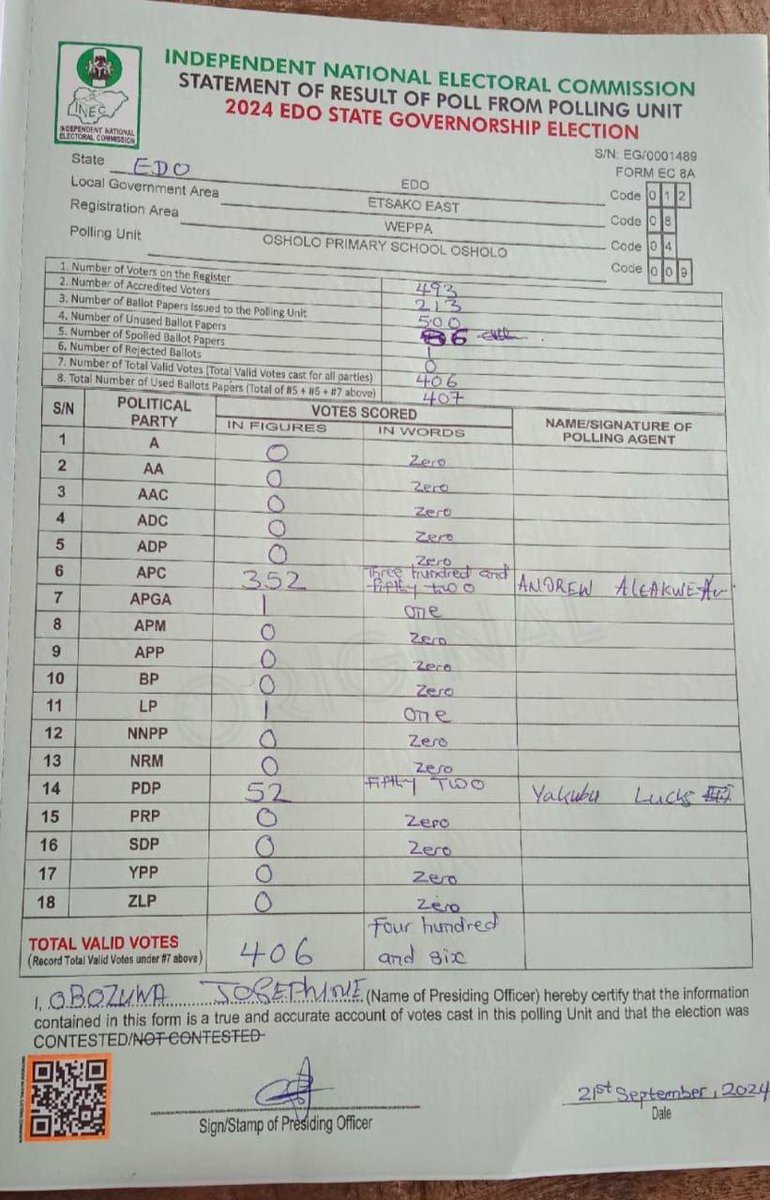 INDEPENDENT NATIONAL ELECTORAL COMMISSION
STATEMENT OF RESULT OF POLL FROM POLLING UNIT
2024 EDO STATE GOVERNORSHIP ELECTION
INEC
INDEPENDENT NATIONAL
ELECTORAL COMMISSION
S/N: EG/0001489
FORM EC 8A
State EDO EDO Code 0 1 2
Local Government Area ETSAKO EAST Code 0 8
Registration Area WEPPA Code 0 4
Polling Unit OSHOLO PRIMARY SCHOOL OSHOLO Code 0 0 9
1. Number of Voters on the Register 493
2. Number of Accredited Voters 213
3. Number of Ballot Papers Issued to the Polling Unit 500
4. Number of Unused Ballot Papers 6
5. Number of Spoiled Ballot Papers 1
6. Number of Rejected Ballots 0
7. Number of Total Valid Votes (Total Valid Votes cast for all parties) 406
8. Total Number of Used Ballots Papers (Total of #5 + #6 + #7 above) 407
S/N POLITICAL PARTY VOTES SCORED NAME/SIGNATURE OF POLLING AGENT
IN FIGURES IN WORDS
1 A 0 Zero
2 AA 0 Zero
3 AAC 0 Zero
4 ADC 0 Zero
5 ADP 0 Zero
6 APC 352 Three hundred and fifty two ANDREW
7 APGA 1 one
8 APM 0 Zero
9 APP 0 Zero
10 BP 0 Zero
11 LP 1 one
12 NNPP 0 Zero
13 NRM 0 Zero
14 PDP 52 fifty Two Yakubu
15 PRP 0 Zero
16 SDP 0 Zero
17 YPP 0 Zero
18 ZLP 0 Zero
TOTAL VALID VOTES 406 four hundred and six
(Record Total Valid Votes under #7 above)
ORIGINAL
I, OBOZUWA JOSEPHINE (Name of Presiding Officer) hereby certify that the information
contained in this form is a true and accurate account of votes cast in this polling Unit and that the election was
CONTESTED/NOT CONTESTED
21st September, 2024
Sign/Stamp of Presiding Officer Date